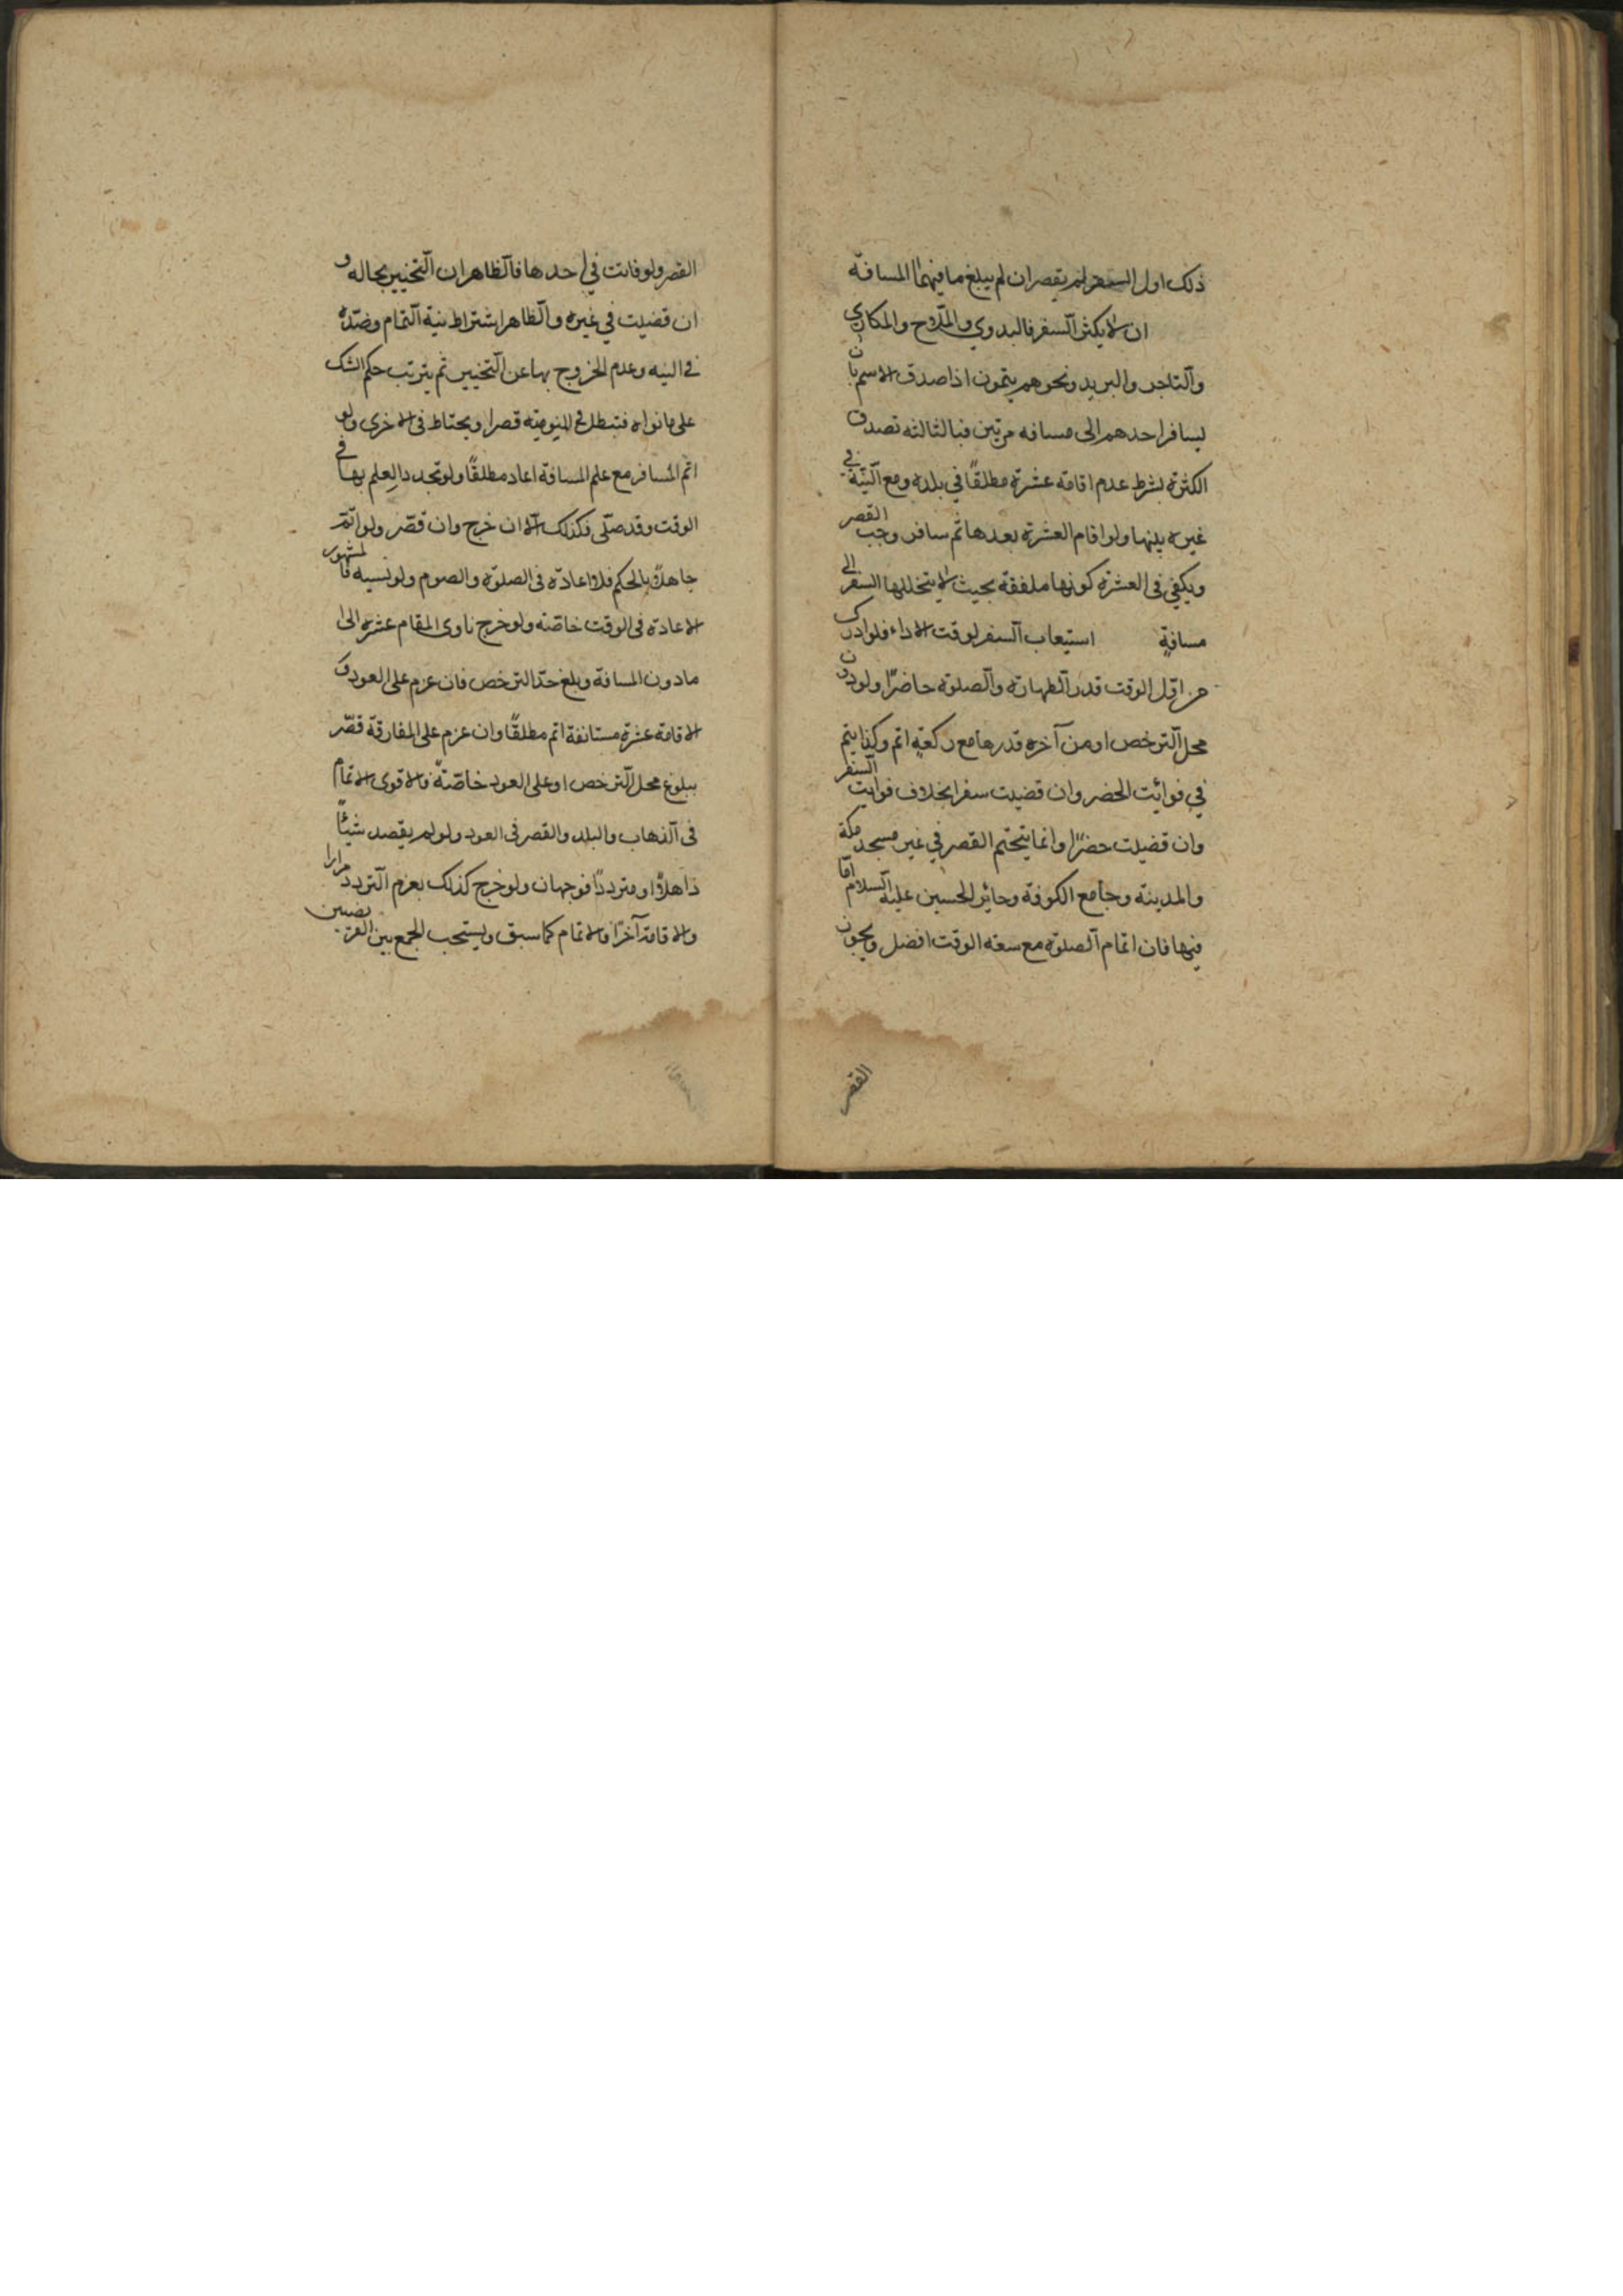 ذلك اول السفر لم يقصر ان لم يبلغ ما فيهما المسافة
ان لا يكثر السفر فالبدوي والملّاح والمكاري
والتاجر والبريد ونحوهم يتمون اذا صدق الاسم بان
يسافر احدهم الى مسافه مرتين فبالثالثه تصدق
الكثرة بشرط عدم اقامة عشرة مطلقًا في بلده ومع النيّة في
غيره بينها ولو اقام العشرة بعدها ثم سافر وجب القصر
ويكفي فى العشرة كونها ملفقة بحيث لا يتخللها السفر الى
مسافةٍ استيعاب السفر لوقت الاداء فلو ادرك
من اوّل الوقت قدر الطهارة والصلوة حاضرًا ولو دون
محل الترخص او من آخره قدرها مع ركعةٍ اتم وكذا يتم
في فوائت الحضر وان قضيت سفرا بخلاف فوايت السفر
وان قضيت حضرًا وانما يتحتم القصر في غير مسجد مكة
والمدينة وجامع الكوفة وحائر الحسين عليه السلام امّا
فيها فان اتمام الصلوة مع سعة الوقت افضل ويجوز
القصر
القصر ولو فاتت في احدها فالظاهر ان التخيير بحاله و
ان قضيت في غيره والظاهر اشتراط نية التمام وضدّه
فى النيه وعدم الخروج بها عن التخيير ثم يترتب حكم الشك
على ما نواه فتبطل المنويّة قصرا ويحتاط فى الاخرى ولو
اتم المسافر مع علم المسافة اعاد مطلقًا ولو تجدد العلم بها في
الوقت وقد صلّى فكذلك الّا ان خرج وان قصّر ولو اتمّ
جاهلًا بالحكم فلا اعادة فى الصلوة والصوم ولو نسيه فالمشهور
الاعادة فى الوقت خاصّة ولو خرج ناوى المقام عشرة الى
مادون المسافة وبلغ حدّ الترخص فان عزم على العود و
الاقامة عشرة مستانفة اتم مطلقًا وان عزم على المفارقة قصّر
ببلوغ محل الترخص او على العود خاصّةً فالاقوى الاتمام
فى الذهاب والبلد والقصر فى العود ولو لم يقصد شيئًا
ذاهلًا او مترددًا فوجهان ولو خرج كذلك بعزم التردد مرارا
والاقامة آخرًا فالاتمام كما سبق ويستحب الجمع بين الفريضتين